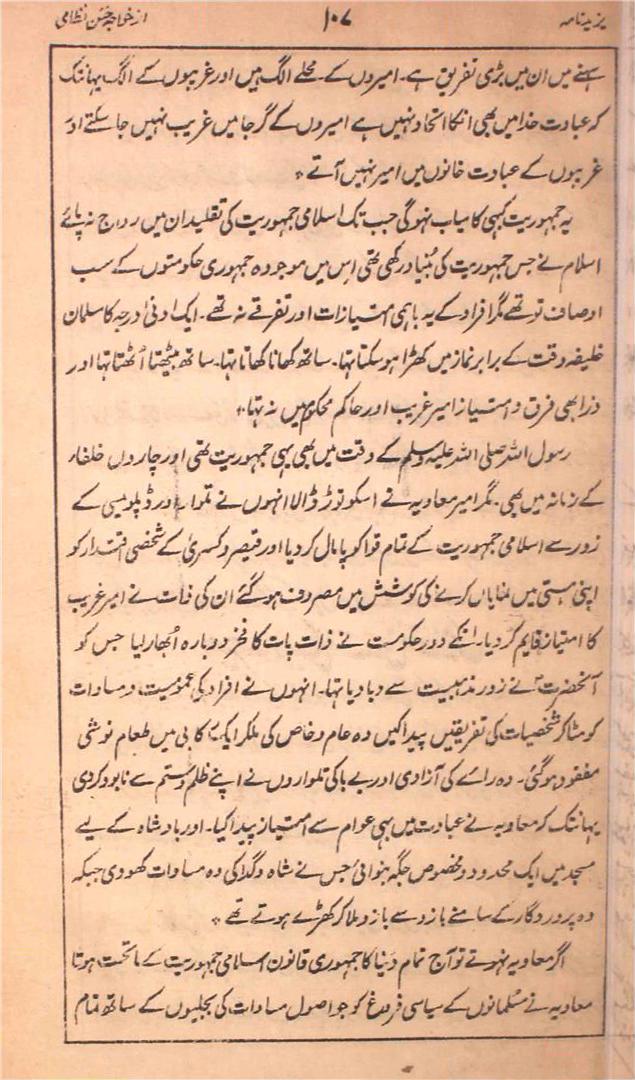 یزیدنامہ ۱۰۷ از خواجہ حسن نظامی
سہنے میں ان میں بڑی تفریق ہے۔ امیروں کے محلے الگ ہیں اور غریبوں کے الگ یہانتک
کہ عبادت خدا میں بھی انکا اتحاد نہیں ہے امیروں کے گرجا میں غریب نہیں جا سکتے اور
غریبوں کے عبادت خانوں میں امیر نہیں آتے ٭
یہ جمہوریت کبھی کامیاب نہو گی جب تک اسلامی جمہوریت کی تقلید ان میں رواج نہ پائے
اسلام نے جس جمہوریت کی بنیاد رکھی تھی اس میں موجودہ جمہوری حکومتوں کے سب
اوصاف تو تھے مگر افراد کے یہ باہمی امتیازات اور تفرقے نہ تھے۔ ایک ادنیٰ درجہ کا مسلمان
خلیفہ وقت کے برابر نماز میں کھڑا ہو سکتا تہا۔ ساتھ کھانا کھاتا تہا۔ ساتھ بیٹھتا اُٹھتا تہا اور
ذرا بھی فرق و امتیاز امیر غریب اور حاکم محکوم میں نہ تہا ٭
رسول اللہ صلی اللہ علیہ وسلم کے وقت میں بھی یہی جمہوریت تھی اور چاروں خلفار
کے زمانہ میں بھی۔ مگر امیر معاویہ نے اسکو توڑ ڈالا انہوں نے تلوار اور ڈپلومیسی کے
زور سے اسلامی جمہوریت کے تمام قوا کو پامال کر دیا اور قیصر و کسریٰ کے شخصی اقتدار کو
اپنی ہستی میں نمایاں کرنے کی کوشش میں مصروف ہو گئے ان کی ذات نے امیر غریب
کا امتیاز قایم کر دیا۔ انکے دور حکومت نے ذات پات کا فخر دوبارہ اُبھار لیا جس کو
آنحضرتؐ نے زور مذہبیت سے دبا دیا تہا۔ انہوں نے افراد کی عمومیت و مساوات
کو مٹا کر شخصیات کی تفریقیں پیدا کیں وہ عام و خاص کی ملکر ایک رکابی میں طعام نوشی
مفقود ہو گئی۔ وہ رائے کی آزادی اور بے باکی تلواروں نے اپنے ظلم و ستم سے نابود کر دی
یہانتک کہ معاویہ نے عبادت میں بہی عوام سے امتیاز پیدا کیا۔ اور بادشاہ کے لیے
مسجد میں ایک محدود و مخصوص جگہ بنوائی جس نے شاہ و گدا کی وہ مساوات کھو دی جبکہ
وہ پروردگار کے سامنے بازو سے بازو ملا کر کھڑے ہوتے تھے ٭
اگر معاویہ نہوتے تو آج تمام دنیا کا جمہوری قانون اسلامی جمہوریت کے ماتحت ہوتا
معاویہ نے مسلمانوں کے سیاسی فروغ کو جو اصول مساوات کی بجلیوں کے ساتھ تمام